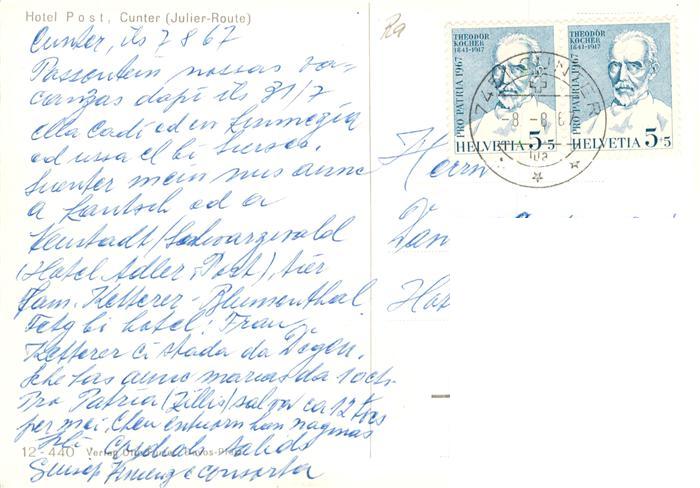 Hotel Post, Cunter (Julier-Route)
Cunter, ils 7 8 67
Passentein nossas va-
canzas dapi ils 31/7
ella ca ed en
ed ussa el bi
Suenter mein nus aunc
a Lantsch ed a
Neustadt/Schwarzwald
(Hotel Adler-Post), tier
fam. Ketterer-Blumenthal
Fetg bi hotel! Frau
Ketterer ei stada da Degen.
Sche has aunc marcas da 10 cts
Pro Patria (Zillis) salva ca 12 
per mei. entuorn han naginas
pli. Cordials salids
e consorta
12-440 Verlag
Ra
THEODOR
KOCHER
1841-1917
PRO PATRIA 1967
HELVETIA 5+5
THEODOR
KOCHER
1841-1917
PRO PATRIA 1967
HELVETIA 5+5
CUNTER
-8.-8.6
Herrn